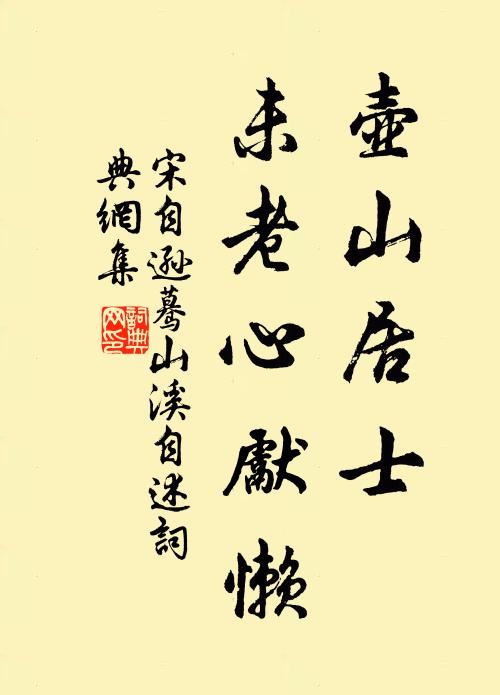 壺山居士
未老心獻懶
宋自遜驀山溪自述詞
典網集
詞典
网印